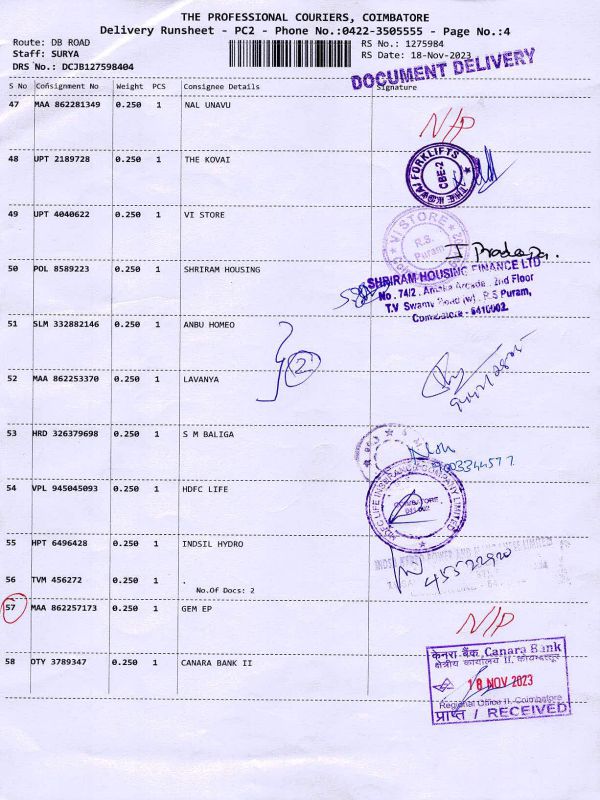 THE PROFESSIONAL COURIERS, COIMBATORE
Delivery Runsheet - PC2 - Phone No.:0422-3505555 - Page No.:4
Route: DB ROAD
Staff: SURYA
DRS No.: DCJB127598404
RS No.: 1275984
RS Date: 18-Nov-2023
DOCUMENT DELIVERY
S No Consignment No Weight PCS Consignee Details Signature
47 MAA 862281349 0.250 1 NAL UNAVU
N/P
48 UPT 2189728 0.250 1 THE KOVAI
THE KOVAI FORKLIFTS
CBE-2
49 UPT 4040622 0.250 1 VI STORE
VI STORE
R.S.
Puram
50 POL 8589223 0.250 1 SHRIRAM HOUSING
SHRIRAM HOUSING FINANCE LTD
No. 74/2, Arcade, 2nd Floor
T.V Swamy Road (w), R.S Puram,
Coimbatore - 641002.
51 SLM 332882146 0.250 1 ANBU HOMEO
2
52 MAA 862253370 0.250 1 LAVANYA
53 HRD 326379698 0.250 1 S M BALIGA
54 VPL 945045093 0.250 1 HDFC LIFE
HDFC LIFE INSURANCE COMPANY LIMITED
COIMBATORE
55 HPT 6496428 0.250 1 INDSIL HYDRO
POWER AND LIMITED
56 TVM 456272 0.250 1 .
No.Of Docs: 2
45522920
57 MAA 862257173 0.250 1 GEM EP
N/P
58 OTY 3789347 0.250 1 CANARA BANK II
केनरा बैंक, Canara Bank
क्षेत्रीय कार्यालय II, कोयम्बत्तूर
18 NOV 2023
Regional Office II, Coimbatore
प्राप्त / RECEIVED